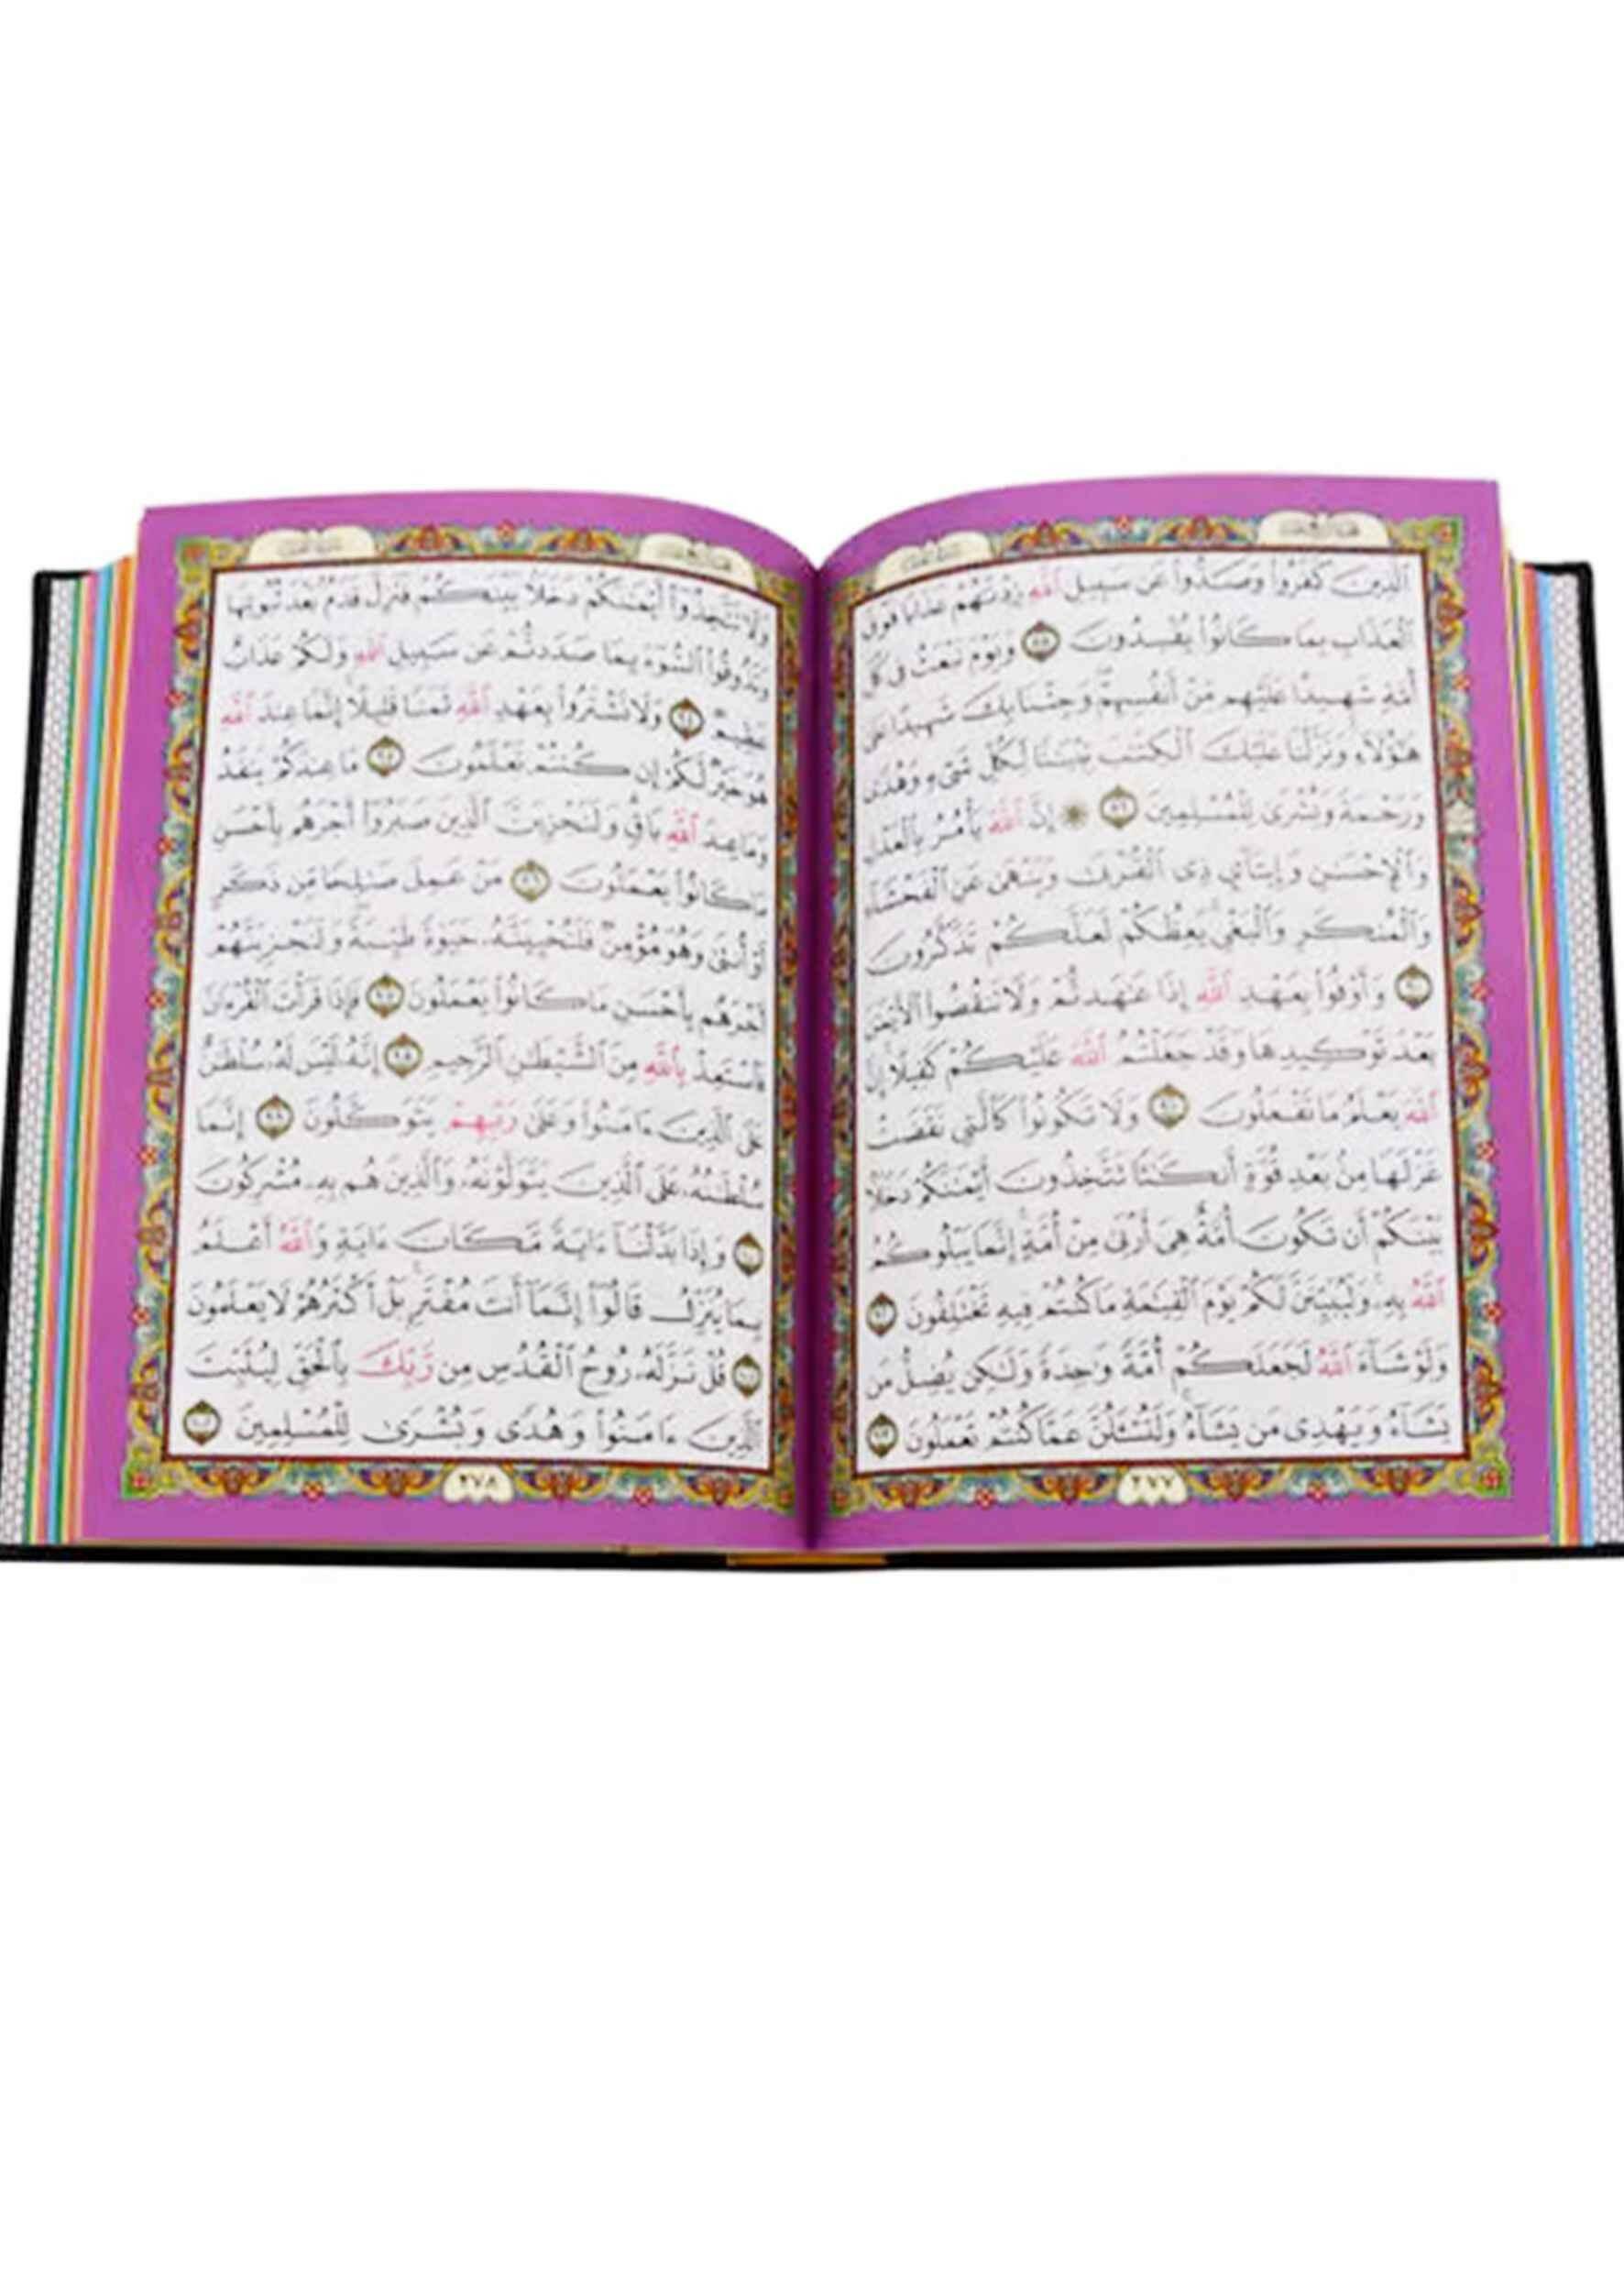 الَّذِينَ كَفَرُوا۟ وَصَدُّوا۟ عَن سَبِيلِ ٱللَّهِ زِدْنَٰهُمْ عَذَابًا فَوْقَ
ٱلْعَذَابِ بِمَا كَانُوا۟ يُفْسِدُونَ ٨٨ وَيَوْمَ نَبْعَثُ فِى كُلِّ
أُمَّةٍ شَهِيدًا عَلَيْهِم مِّنْ أَنفُسِهِمْ وَجِئْنَا بِكَ شَهِيدًا عَلَىٰ
هَٰٓؤُلَآءِ وَنَزَّلْنَا عَلَيْكَ ٱلْكِتَٰبَ تِبْيَٰنًا لِّكُلِّ شَىْءٍ وَهُدًى
وَرَحْمَةً وَبُشْرَىٰ لِلْمُسْلِمِينَ ٨٩ ۞ إِنَّ ٱللَّهَ يَأْمُرُ بِٱلْعَدْلِ
وَٱلْإِحْسَٰنِ وَإِيتَآئِ ذِى ٱلْقُرْبَىٰ وَيَنْهَىٰ عَنِ ٱلْفَحْشَآءِ
وَٱلْمُنكَرِ وَٱلْبَغْىِ يَعِظُكُمْ لَعَلَّكُمْ تَذَكَّرُونَ
٩٠ وَأَوْفُوا۟ بِعَهْدِ ٱللَّهِ إِذَا عَٰهَدتُّمْ وَلَا تَنقُضُوا۟ ٱلْأَيْمَٰنَ
بَعْدَ تَوْكِيدِهَا وَقَدْ جَعَلْتُمُ ٱللَّهَ عَلَيْكُمْ كَفِيلًا إِنَّ
ٱللَّهَ يَعْلَمُ مَا تَفْعَلُونَ ٩١ وَلَا تَكُونُوا۟ كَٱلَّتِى نَقَضَتْ
غَزْلَهَا مِنۢ بَعْدِ قُوَّةٍ أَنكَٰثًا تَتَّخِذُونَ أَيْمَٰنَكُمْ دَخَلًۢا
بَيْنَكُمْ أَن تَكُونَ أُمَّةٌ هِىَ أَرْبَىٰ مِنْ أُمَّةٍ إِنَّمَا يَبْلُوكُمُ
ٱللَّهُ بِهِۦ وَلَيُبَيِّنَنَّ لَكُمْ يَوْمَ ٱلْقِيَٰمَةِ مَا كُنتُمْ فِيهِ تَخْتَلِفُونَ ٩٢
وَلَوْ شَآءَ ٱللَّهُ لَجَعَلَكُمْ أُمَّةً وَٰحِدَةً وَلَٰكِن يُضِلُّ مَن
يَشَآءُ وَيَهْدِى مَن يَشَآءُ وَلَتُسْـَٔلُنَّ عَمَّا كُنتُمْ تَعْمَلُونَ ٩٣
٢٧٧
وَلَا تَتَّخِذُوٓا۟ أَيْمَٰنَكُمْ دَخَلًۢا بَيْنَكُمْ فَتَزِلَّ قَدَمٌۢ بَعْدَ ثُبُوتِهَا
وَتَذُوقُوا۟ ٱلسُّوٓءَ بِمَا صَدَدتُّمْ عَن سَبِيلِ ٱللَّهِ وَلَكُمْ عَذَابٌ
عَظِيمٌ ٩٤ وَلَا تَشْتَرُوا۟ بِعَهْدِ ٱللَّهِ ثَمَنًا قَلِيلًا إِنَّمَا عِندَ ٱللَّهِ
هُوَ خَيْرٌ لَّكُمْ إِن كُنتُمْ تَعْلَمُونَ ٩٥ مَا عِندَكُمْ يَنفَدُ
وَمَا عِندَ ٱللَّهِ بَاقٍ وَلَنَجْزِيَنَّ ٱلَّذِينَ صَبَرُوٓا۟ أَجْرَهُم بِأَحْسَنِ
مَا كَانُوا۟ يَعْمَلُونَ ٩٦ مَنْ عَمِلَ صَٰلِحًا مِّن ذَكَرٍ
أَوْ أُنثَىٰ وَهُوَ مُؤْمِنٌ فَلَنُحْيِيَنَّهُۥ حَيَوٰةً طَيِّبَةً وَلَنَجْزِيَنَّهُمْ
أَجْرَهُم بِأَحْسَنِ مَا كَانُوا۟ يَعْمَلُونَ ٩٧ فَإِذَا قَرَأْتَ ٱلْقُرْءَانَ
فَٱسْتَعِذْ بِٱللَّهِ مِنَ ٱلشَّيْطَٰنِ ٱلرَّجِيمِ ٩٨ إِنَّهُۥ لَيْسَ لَهُۥ سُلْطَٰنٌ
عَلَى ٱلَّذِينَ ءَامَنُوا۟ وَعَلَىٰ رَبِّهِمْ يَتَوَكَّلُونَ ٩٩ إِنَّمَا
سُلْطَٰنُهُۥ عَلَى ٱلَّذِينَ يَتَوَلَّوْنَهُۥ وَٱلَّذِينَ هُم بِهِۦ مُشْرِكُونَ
١٠٠ وَإِذَا بَدَّلْنَآ ءَايَةً مَّكَانَ ءَايَةٍ وَٱللَّهُ أَعْلَمُ
بِمَا يُنَزِّلُ قَالُوٓا۟ إِنَّمَآ أَنتَ مُفْتَرٍۭ بَلْ أَكْثَرُهُمْ لَا يَعْلَمُونَ
١٠١ قُلْ نَزَّلَهُۥ رُوحُ ٱلْقُدُسِ مِن رَّبِّكَ بِٱلْحَقِّ لِيُثَبِّتَ
ٱلَّذِينَ ءَامَنُوا۟ وَهُدًى وَبُشْرَىٰ لِلْمُسْلِمِينَ ١٠٢
٢٧٨